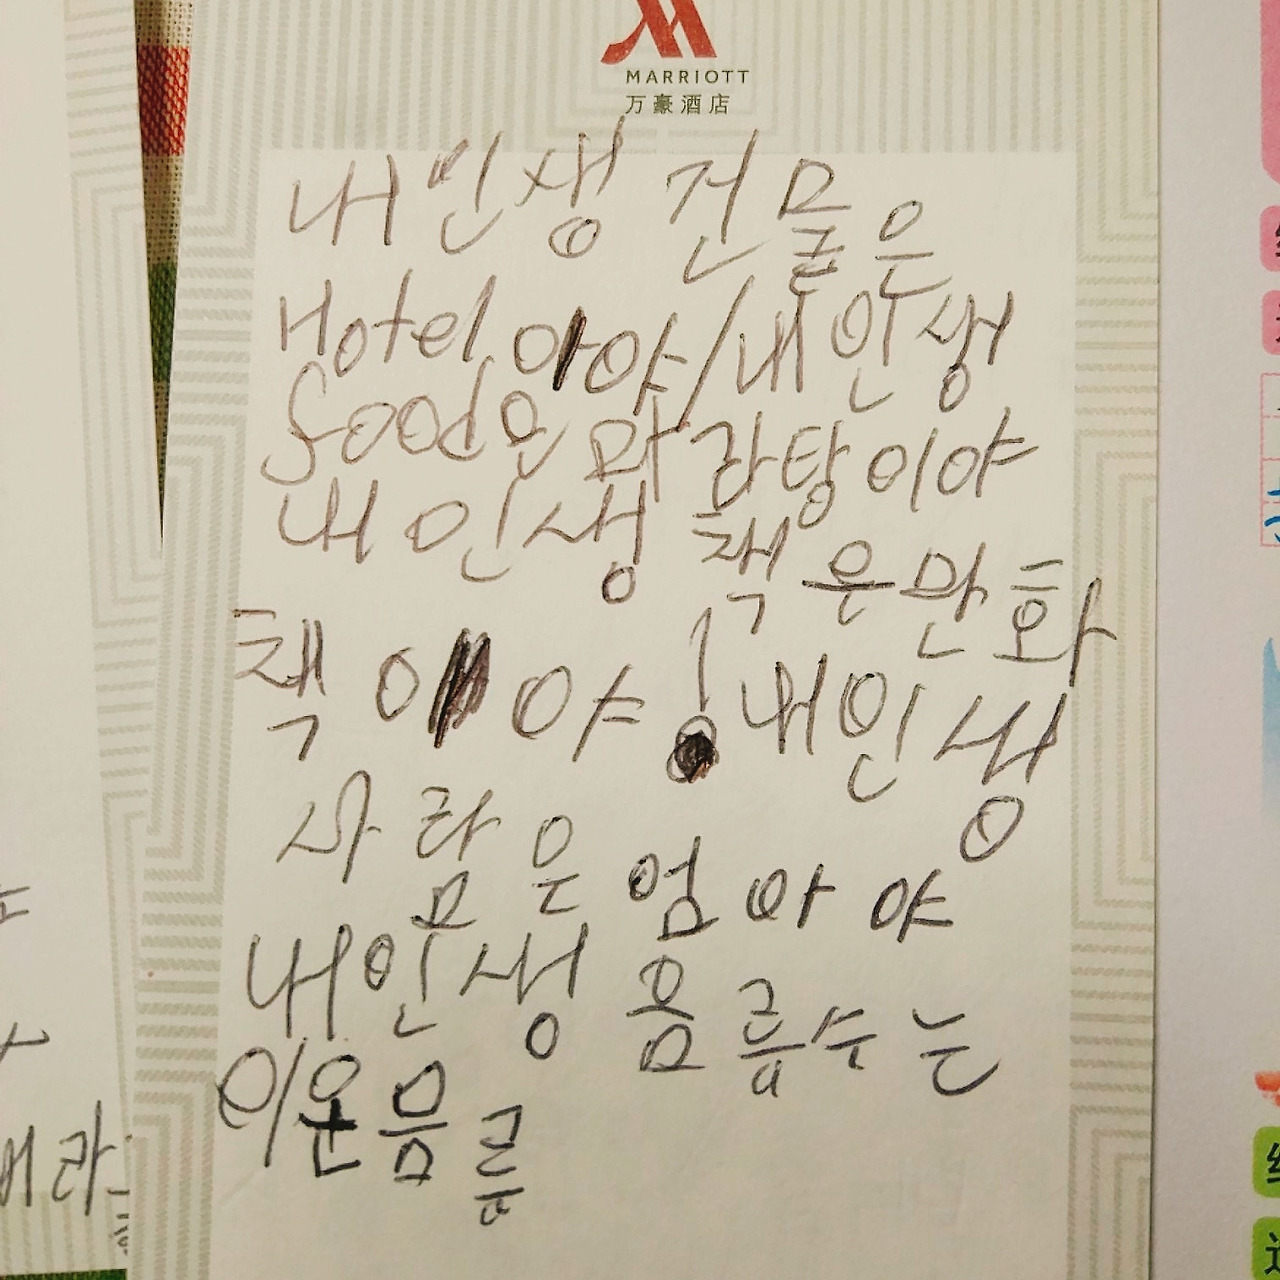 MARRIOTT
万豪酒店
내인생 건물은
Hotel 이야/내인생
food은 마라탕이야
내 인생 책은만화
책 이야! 내인생
사람은 엄마야
내인생 음료수는
이온음료